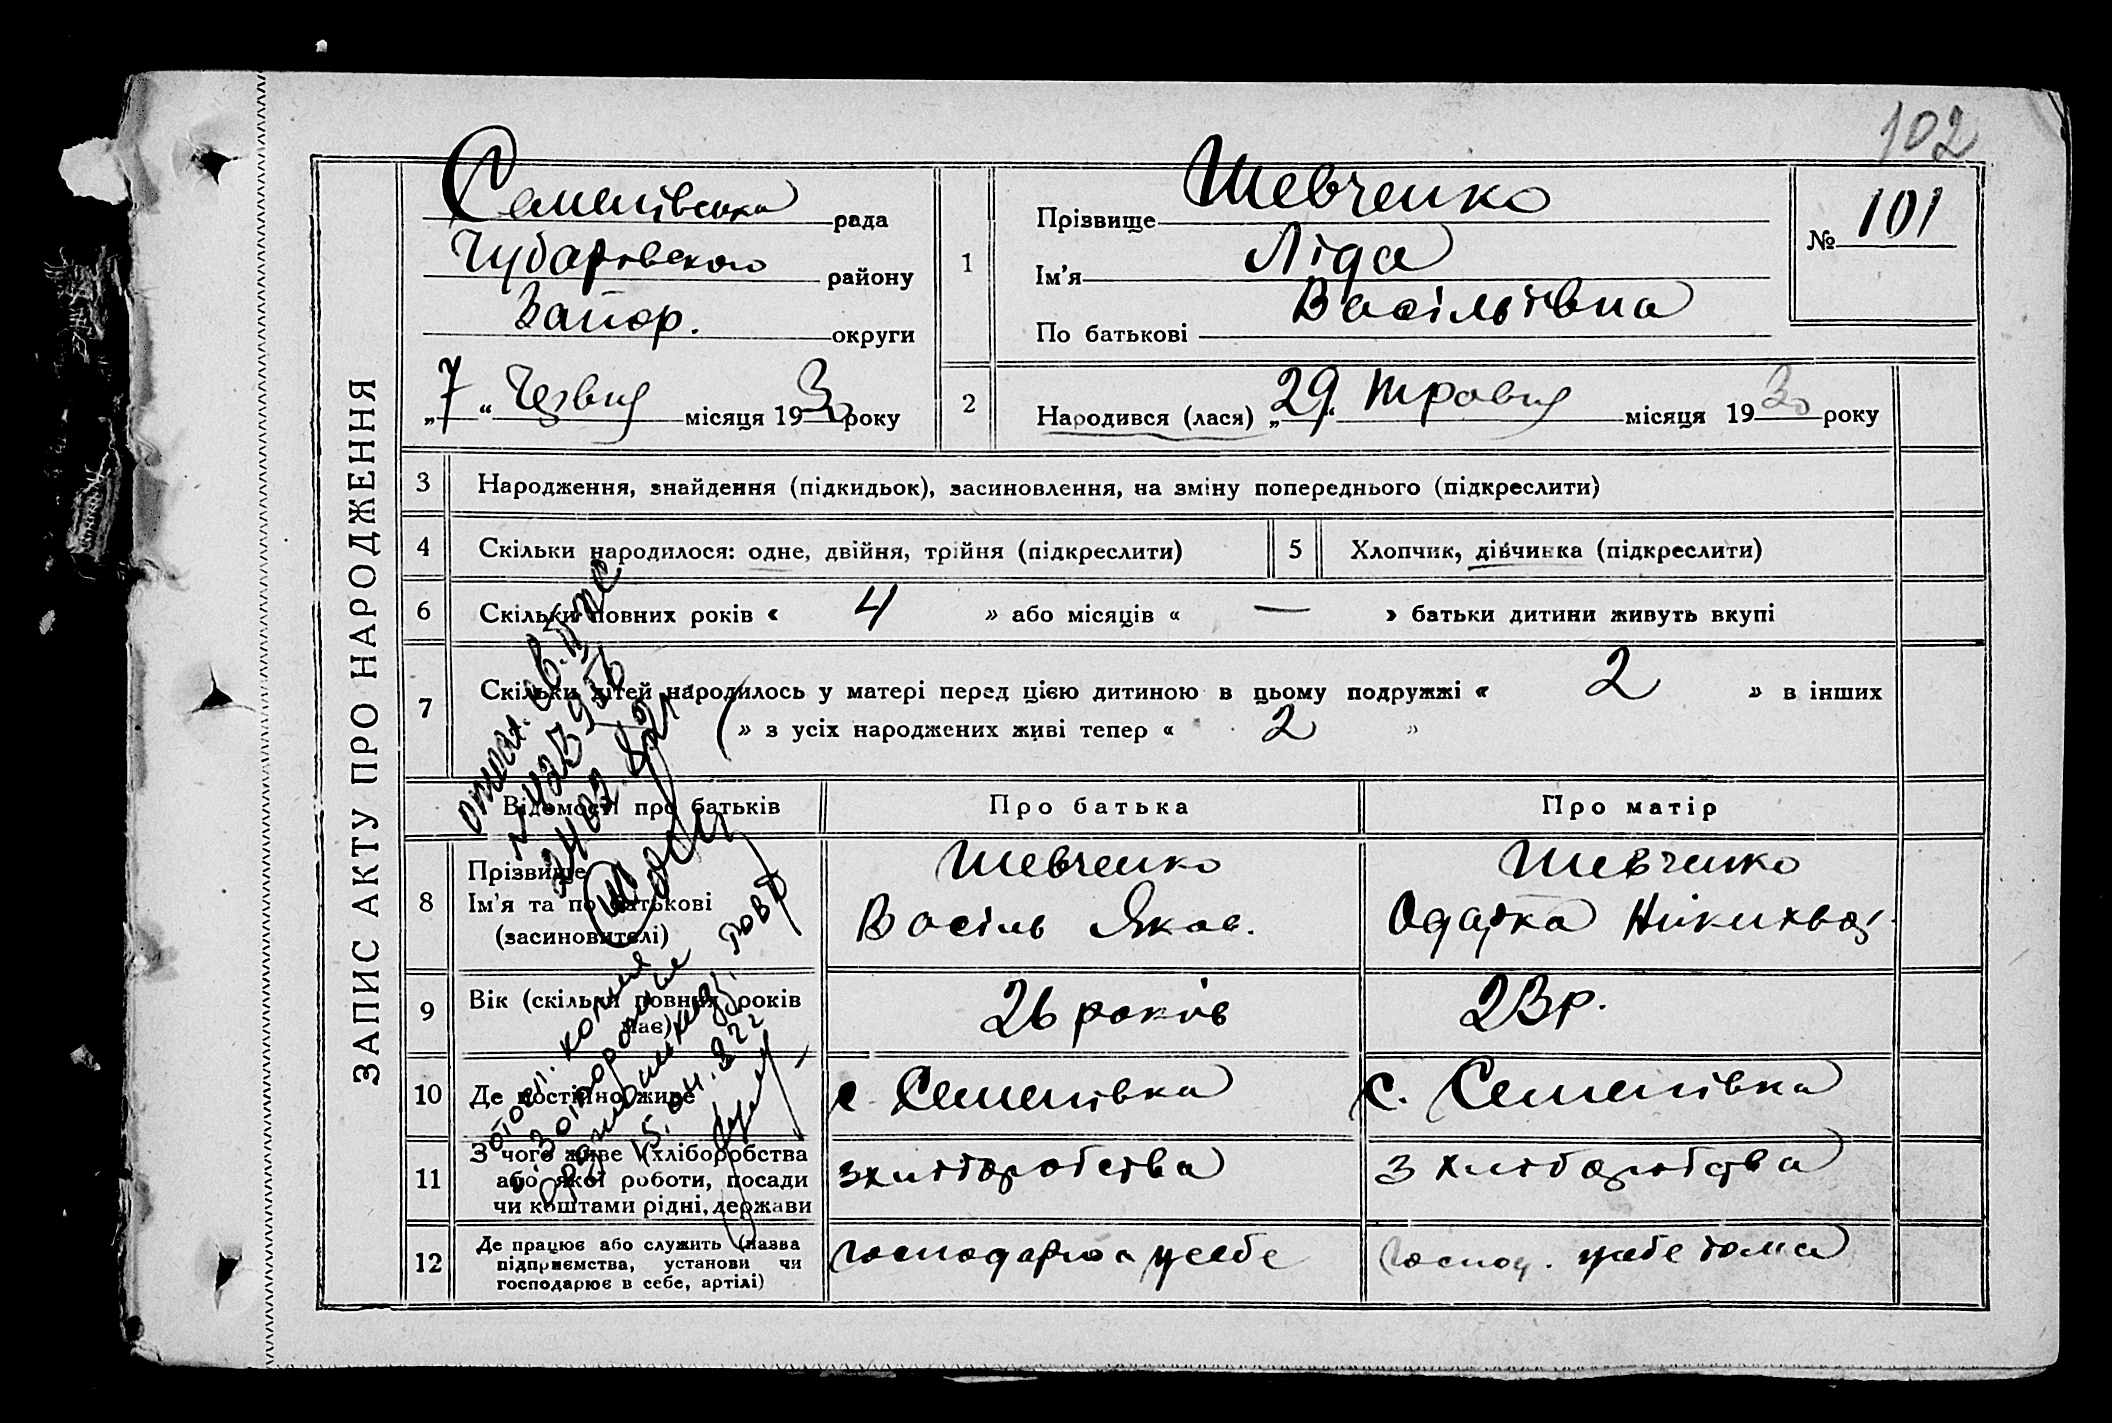 102
ЗАПИС АКТУ ПРО НАРОДЖЕННЯ
Семенівська рада
Чубарівського району
Запор. округи
„7“ Червня місяця 1930 року
1
Прізвище Шевченко
Ім'я Ліда
По батькові Васільівна
№ 101
2
Народився (лася) „29“ травня місяця 1930 року
3 Народження, знайдення (підкидьок), засиновлення, на зміну попереднього (підкреслити)
4 Скільки народилося: одне, двійня, трійня (підкреслити)
5 Хлопчик, дівчинка (підкреслити)
6 Скільки повних років « 4 » або місяців « — » батьки дитини живуть вкупі
7 Скільки дітей народилось у матері перед цією дитиною в цьому подружжі « 2 » в інших
» з усіх народжених живі тепер « 2 »
Відомості про батьків Про батька Про матір
8 Прізвище
Ім'я та по батькові
(засиновителі)
Шевченко
Василь Яков.
Шевченко
Одарка
9 Вік (скільки повних років має)
26 років
23 р.
10 Де постійно живе
с. Семенівка
с. Семенівка
11 З чого живе (хліборобства
або якої роботи, посади
чи коштами рідні, держави
з хліборобства
з хліборобства
12 Де працює або служить (назва
підприємства, установи чи
господарює в себе, артілі)
господарює у себе
господ. у себе дома